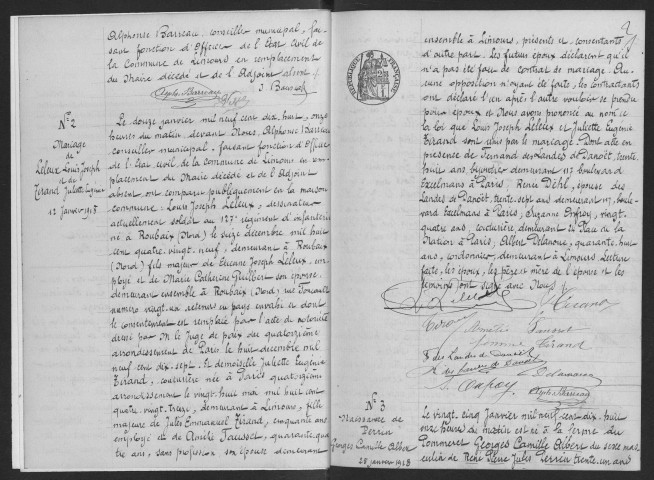 Alphonse Barreau, conseiller municipal, fai-
sant fonction d'Officier de l'Etat Civil de
la Commune de Limours en remplacement
du Maire décédé et de l'Adjoint absent
N° 2
Mariage
de
Leleux Louis Joseph
et
Tirand Juliette Eugénie
12 Janvier 1918
Le douze janvier mil neuf cent dix huit, onze
heures du matin, devant Nous, Alphonse Barreau
conseiller municipal, faisant fonction d'Officier
de l'Etat civil de la commune de Limours, en rem-
placement du Maire décédé et de l'Adjoint
absent, ont comparu publiquement en la maison
commune: Louis Joseph Leleux, dessinateur
actuellement soldat au 127e régiment d'infanterie
né à Roubaix (Nord) le seize décembre mil huit
cent quatre-vingt-neuf, demeurant à Roubaix
(Nord) fils majeur de Etienne Joseph Leleux, em-
ployé et de Marie Catherine Guilbert son épouse,
demeurant ensemble à Roubaix (Nord) rue
numéro vingt-un retenus en pays envahi et dont
le consentement est remplacé par l'acte de notoriété
dressé par M. le Juge de paix du quatorzième
arrondissement de Paris le huit décembre mil
neuf cent dix-sept. Et demoiselle Juliette Eugénie
Tirand, couturière née à Paris quatorzième
arrondissement le vingt huit mai mil huit cent
quatre-vingt-treize, demeurant à Limours, fille
majeure de Jules Emmanuel Tirand, cinquante ans
employé et de Amélie Sausset, quarante-qua-
tre ans, sans profession son épouse demeurant
3
REPUBLIQUE FRANÇAISE
ensemble à Limours, présents et consentants
d'autre part. Les futurs époux déclarent qu'il
n'a pas été fait de contrat de mariage. Au-
cune opposition n'ayant été faite, les contractants
ont déclaré l'un après l'autre vouloir se prendre
pour époux et Nous avons prononcé au nom de
la loi que Louis Joseph Leleux et Juliette Eugénie
Tirand sont unis par le mariage. Dont acte en
présence de Fernand des Landes de Danoët, trente
huit ans, bijoutier demeurant 117 boulevard
Exelmans à Paris; Renée Diehl, épouse des
Landes de Danoët, trente-sept ans, demeurant 117, boule-
vard Exelmans à Paris, Suzanne, vingt-
quatre ans, couturière demeurant de la
Nation à Paris, Albert Delanoue, quarante huit
ans, cordonnier, demeurant à Limours. Lecture
faite, les époux, les père et mère de l'épouse et les
témoins ont signé avec Nous
L. Leleux
Tirand
Amélie Sausset
Tirand
N° 3
Naissance de
Perrin
Georges Camille Albert
25 janvier 1918
Le vingt-cinq Janvier mil neuf cent dix-huit
onze heures du matin est né à la ferme du
Pommeret Georges Camille Albert du sexe mas-
culin de René Pierre Jules Perrin trente-un ans